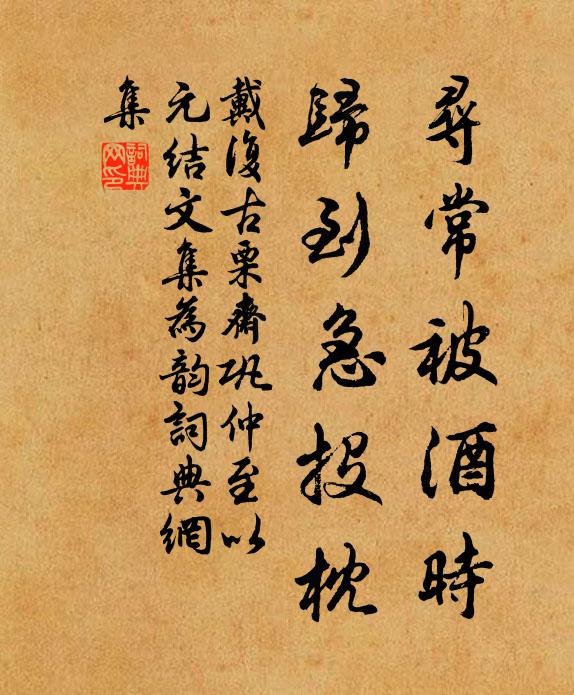 尋常被酒時
歸到急投枕
戴復古栗齋巩仲至以
元结文集為韵詞典網
集
詞典網印